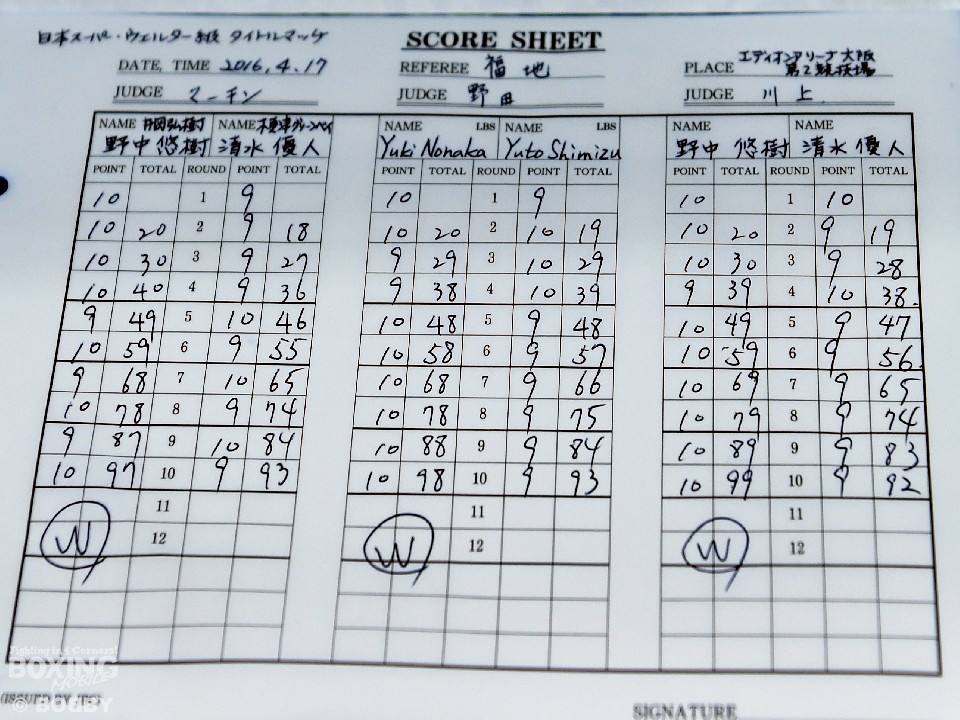 日本スーパー・ウェルター級 タイトルマッチ
SCORE SHEET
DATE, TIME 2016, 4. 17
REFEREE 福地
PLACE エディオンアリーナ大阪
第2競技場
JUDGE マーチン
JUDGE 野田
JUDGE 川上
NAME 井岡弘樹 NAME
野中 悠樹 清水 優人
NAME LBS NAME LBS
Yuki Nonaka Yuto Shimizu
NAME NAME
野中 悠樹 清水 優人
POINT TOTAL ROUND POINT TOTAL POINT TOTAL ROUND POINT TOTAL POINT TOTAL ROUND POINT TOTAL
10 1 9 10 1 9 10 1 10
10 20 2 9 18 10 20 2 10 19 10 20 2 9 19
10 30 3 9 27 9 29 3 10 29 10 30 3 9 28
10 40 4 9 36 9 38 4 10 39 9 39 4 10 38
9 49 5 10 46 10 48 5 9 48 10 49 5 9 47
10 59 6 9 55 10 58 6 9 57 10 59 6 9 56
9 68 7 10 65 10 68 7 9 66 10 69 7 9 65
10 78 8 9 74 10 78 8 9 75 10 79 8 9 74
9 87 9 10 84 10 88 9 9 84 10 89 9 9 83
10 97 10 9 93 10 98 10 9 93 10 99 10 9 92
11 11 11
W 12 W 12 W 12
Fighting in 4 Corners!
BOXING
MOBILE
© BOGBY
SIGNATURE